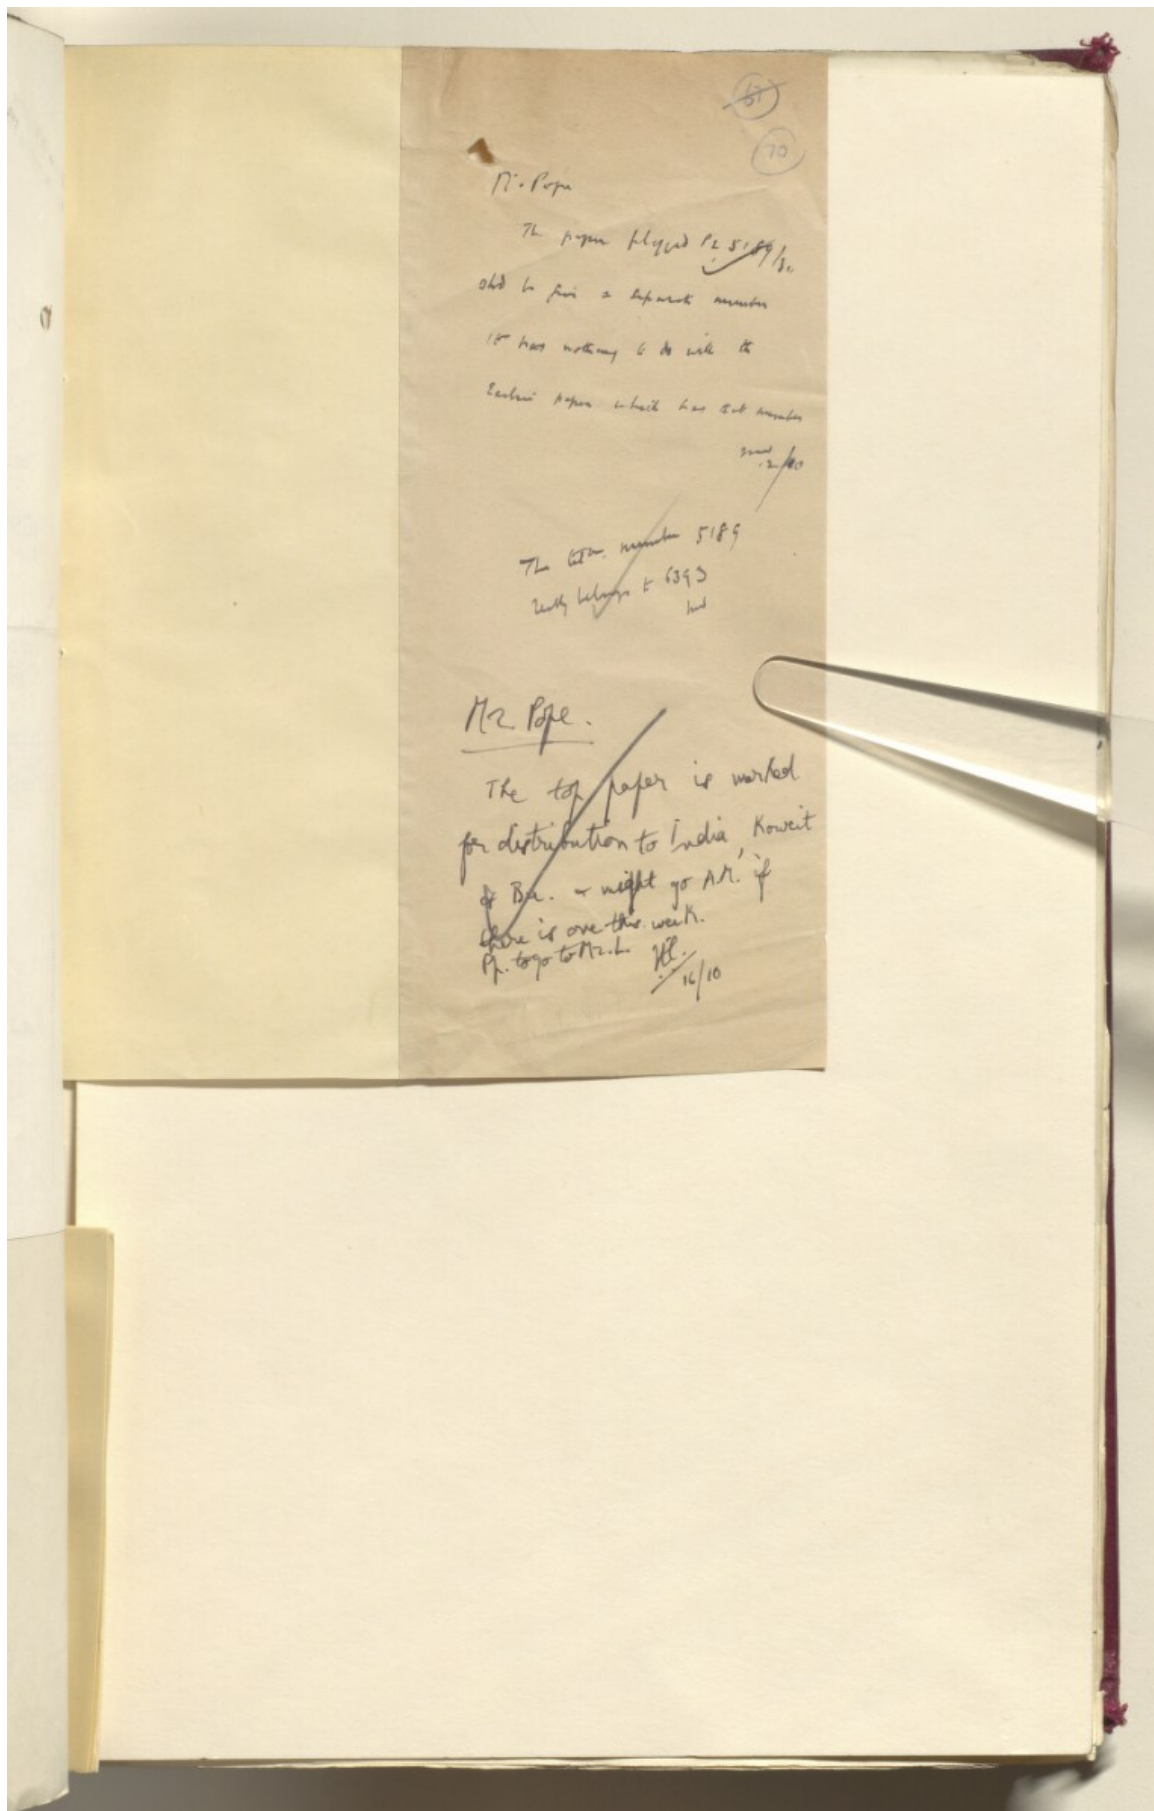 70
Mr. Pope
The paper flagged Pz 5189/30
shd be given a separate number
It has nothing to do with the
Earlier paper which has that number
The number 5189
really belongs to 6393
Mr Pope.
The top paper is marked
for distribution to India, Koweit
& Bu. & might go A.M. if
there is one this week.
Pp. to go to Mr. L.
16/10